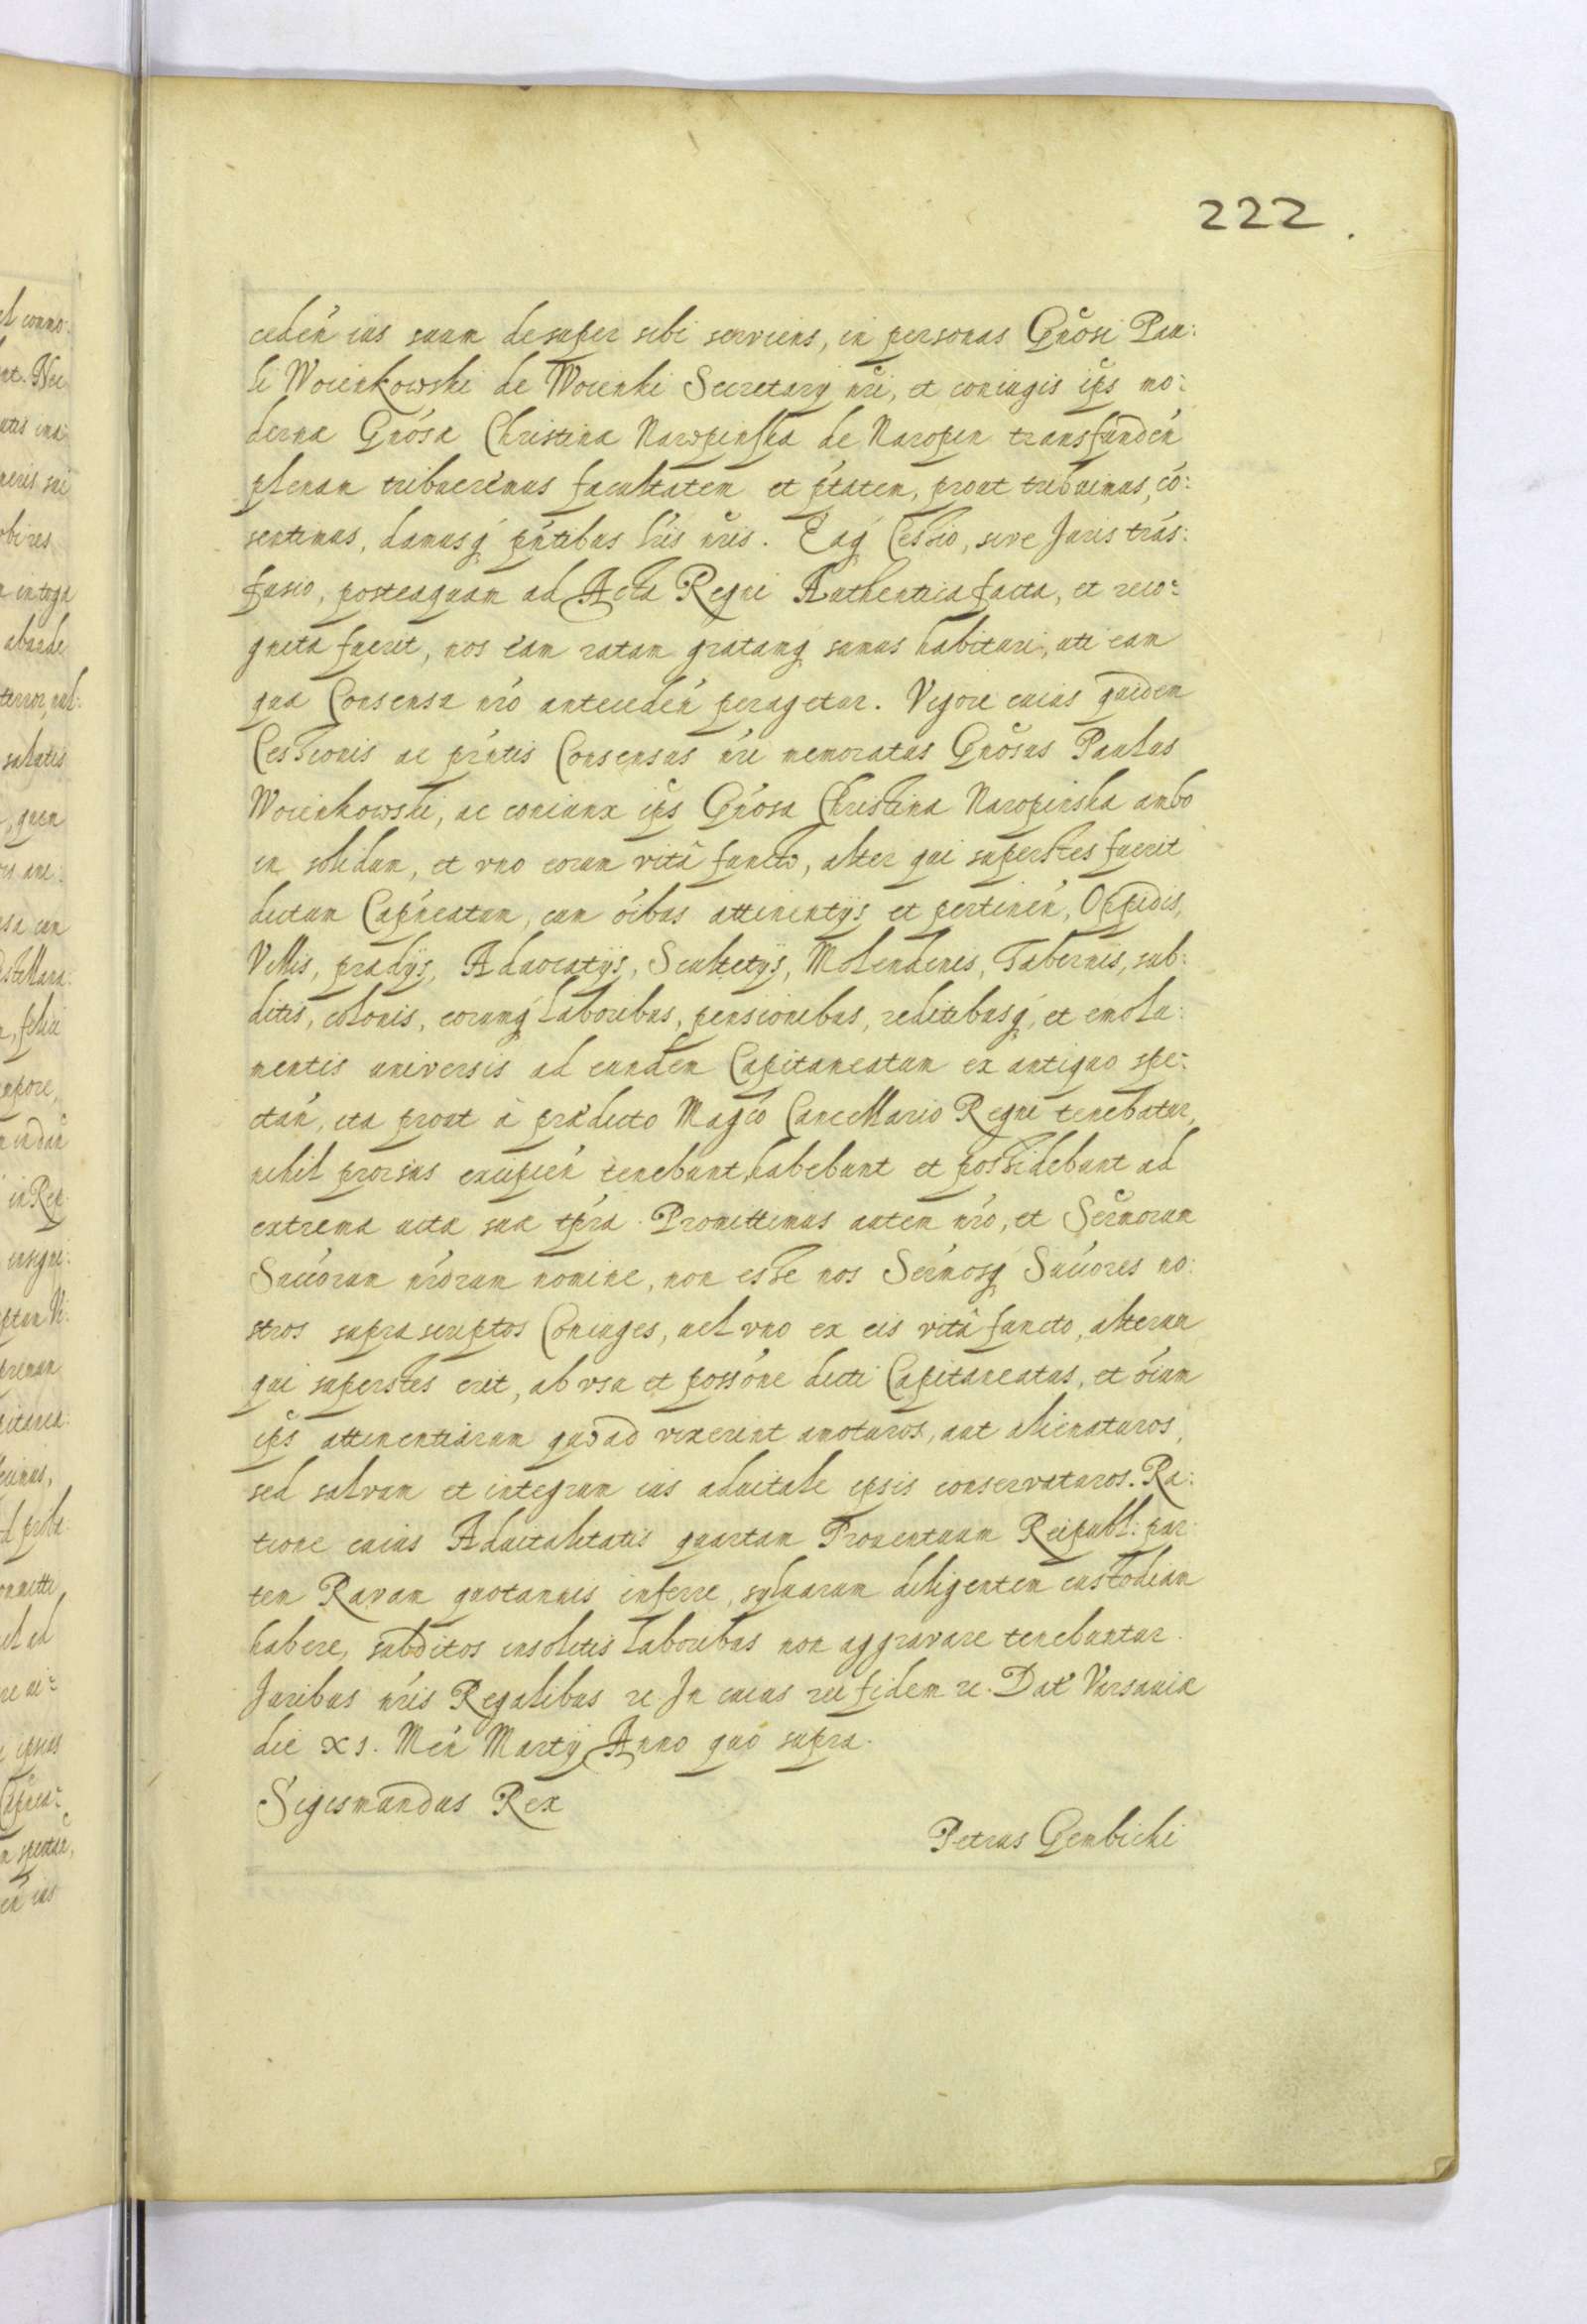 222.
ceden̄ ius suum desuper sibi serviens, in personas Gnōsi Pau:
li Woienkowski de Woienki Secretarÿ nr̄i, et coniugis ip̄s mo:
derna Gnōsa Christina Naropinska de Naropin transfunden̄
plenam tribuerimus facultatem et ptātem, prout tribuimus, cō:
sentimus, damusq́ pn̄tibus lr̄is nr̄is. Eaq́ Cessio, sive Juris trās:
fusio, posteaquam ad Acta Regni Authentica facta, et reco:
gnita fuerit, nos eam ratam gratamq́ sumus habituri, uti eam
qua Consensu nr̄o anteceden̄ peragetur. Vigore cuius quidem
Cessionis ac prn̄tis Consensus nr̄i memoratus Gnōsus Paulus
Woienkowski, ac coniunx ip̄s Gnōsa Christina Naropinska ambo
in solidum, et vno eorum vitâ functo, alter qui superstes fuerit
dictum Capn̄eatum, cum ōibus attinentÿs et pertinen̄, Oppidis,
Villis, prædÿs, Aduocatÿs, Scultetÿs, Molendinis, Tabernis, sub:
ditis, colonis, eorumq́ laboribus, pensionibus, reditibusq́, et emolu:
mentis universis ad eundem Capitaneatum ex antiquo spe:
ctan̄, ita prout à prædicto Magc̄o Cancellario Regni tenebatur,
nihil prorsus excipien̄ tenebunt, habebunt et possidebunt ad
extrema uita sua tp̄ra. Promittimus autem nr̄o, et Serm̄orum
Succ̄orum nr̄orum nomine, non esse nos Serm̄osq́ Succ̄ores no:
stros supra scriptos Coniuges, uel vno ex eis vitâ functo, alterum
qui superstes erit, ab vsu et poss̄one dicti Capitaneatus, et ōium
ip̄s attinentiarum quoad vixerint amoturos, aut alienaturos,
sed salvum et integrum ius aduitale ipsis conservaturos. Ra:
tione cuius Aduitalitatis quartam Prouentuum Reipubl: par:
tem Ravam quotannis inferre, syluarum diligentem custodiam
habere, subditos insolitis laboribus non aggravare tenebuntur.
Juribus nr̄is Regalibus rc In cuius rei fidem rc. Dat̄ Varsauiæ
die XI. Men̄ Martÿ Anno quo supra.
Sigismundus Rex
Petrus Gembicki